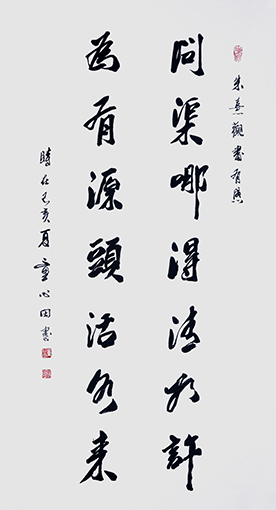 朱熹觀書有感
問渠哪得清如許
為有源頭活水来
時在己亥夏童心田書